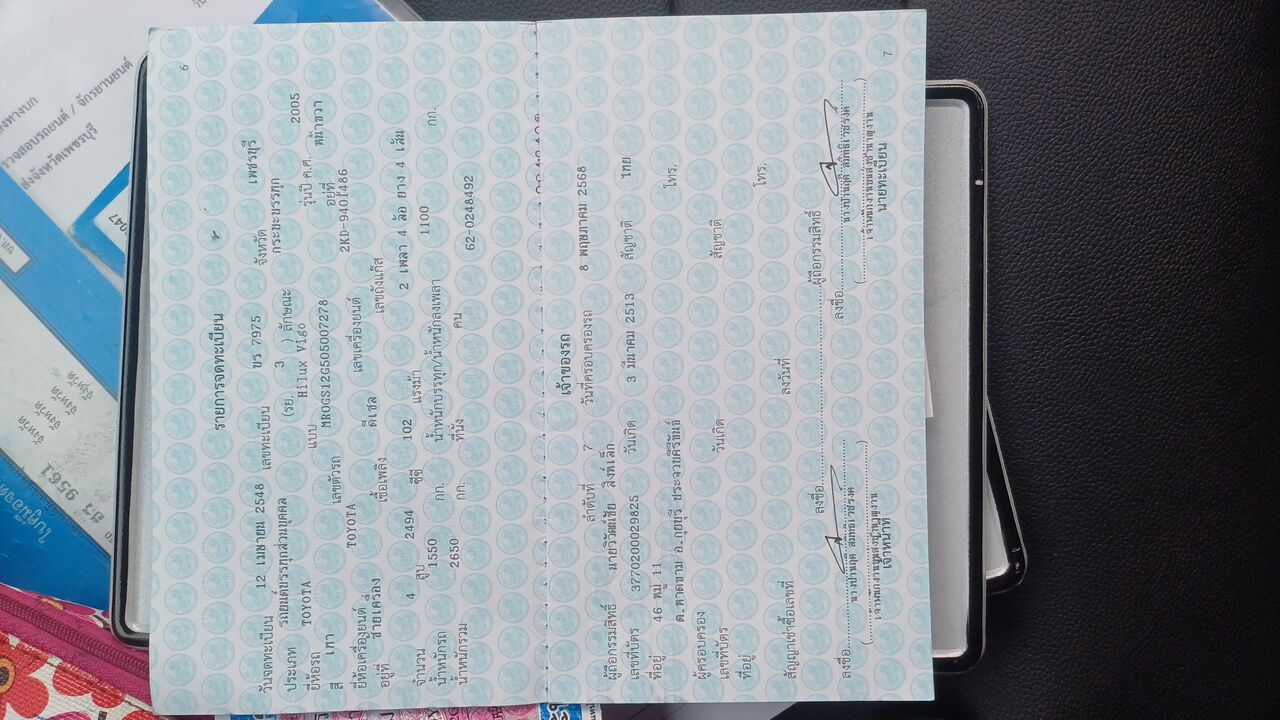 6
รายการจดทะเบียน
วันจดทะเบียน 12 เมษายน 2548 เลขทะเบียน ขร 7975 จังหวัด เพชรบุรี
ประเภท รถยนต์บรรทุกส่วนบุคคล (รย. 3 ) ลักษณะ กระบะบรรทุก
ยี่ห้อรถ TOYOTA แบบ Hilux Vigo รุ่นปี ค.ศ. 2005
สี เทา เลขตัวรถ MROGS12G505007278 อยู่ที่ หน้าขวา
ยี่ห้อเครื่องยนต์ TOYOTA เลขเครื่องยนต์ 2KD-9401486
อยู่ที่ ซ้ายเครื่อง เชื้อเพลิง ดีเซล เลขถังแก๊ส
จำนวน 4 สูบ 2494 ซีซี 102 แรงม้า 2 เพลา 4 ล้อ ยาง 4 เส้น
น้ำหนักรถ 1550 กก. น้ำหนักบรรทุก/น้ำหนักลงเพลา 1100 กก.
น้ำหนักรวม 2650 กก. ที่นั่ง คน 62-0248492
เจ้าของรถ
ลำดับที่ 7 วันที่ครอบครองรถ 8 พฤษภาคม 2568
ผู้ถือกรรมสิทธิ์ นายวิวัฒน์ชัย สิงห์เล็ก
เลขที่บัตร 3770200029825 วันเกิด 3 มีนาคม 2513 สัญชาติ ไทย
ที่อยู่ 46 หมู่ 11
ต.หาดขาม อ.กุยบุรี ประจวบคีรีขันธ์ โทร.
ผู้ครอบครอง
เลขที่บัตร วันเกิด สัญชาติ
ที่อยู่ โทร.
สัญญาเช่าซื้อเลขที่ ลงวันที่
ลงชื่อ ผู้ถือกรรมสิทธิ์
ลงชื่อ ลงชื่อ
เจ้าหน้าที่ นายทะเบียน
7
จังหวัด
จังหวัด
จังหวัด
9561
047
ตรวจสอบรถยนต์ / จักรยานยนต์
ส่งจังหวัดเพชรบุรี